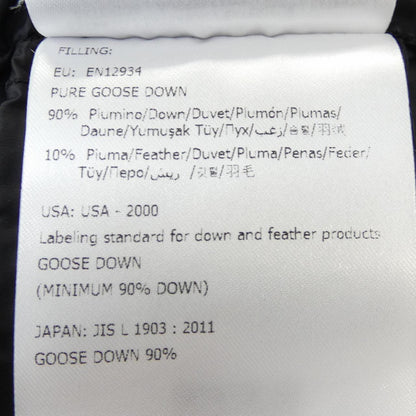 FILLING:
EU: EN12934
PURE GOOSE DOWN
90% Piumino/Down/Duvet/Plumón/Plumas/
Daune/Yumuşak Tüy/Пух/زغب/솜털/羽绒
10% Piuma/Feather/Duvet/Pluma/Penas/Feder/
Tüy/Перо/ريش/깃털/羽毛
USA: USA - 2000
Labeling standard for down and feather products
GOOSE DOWN
(MINIMUM 90% DOWN)
JAPAN: JIS L 1903 : 2011
GOOSE DOWN 90%